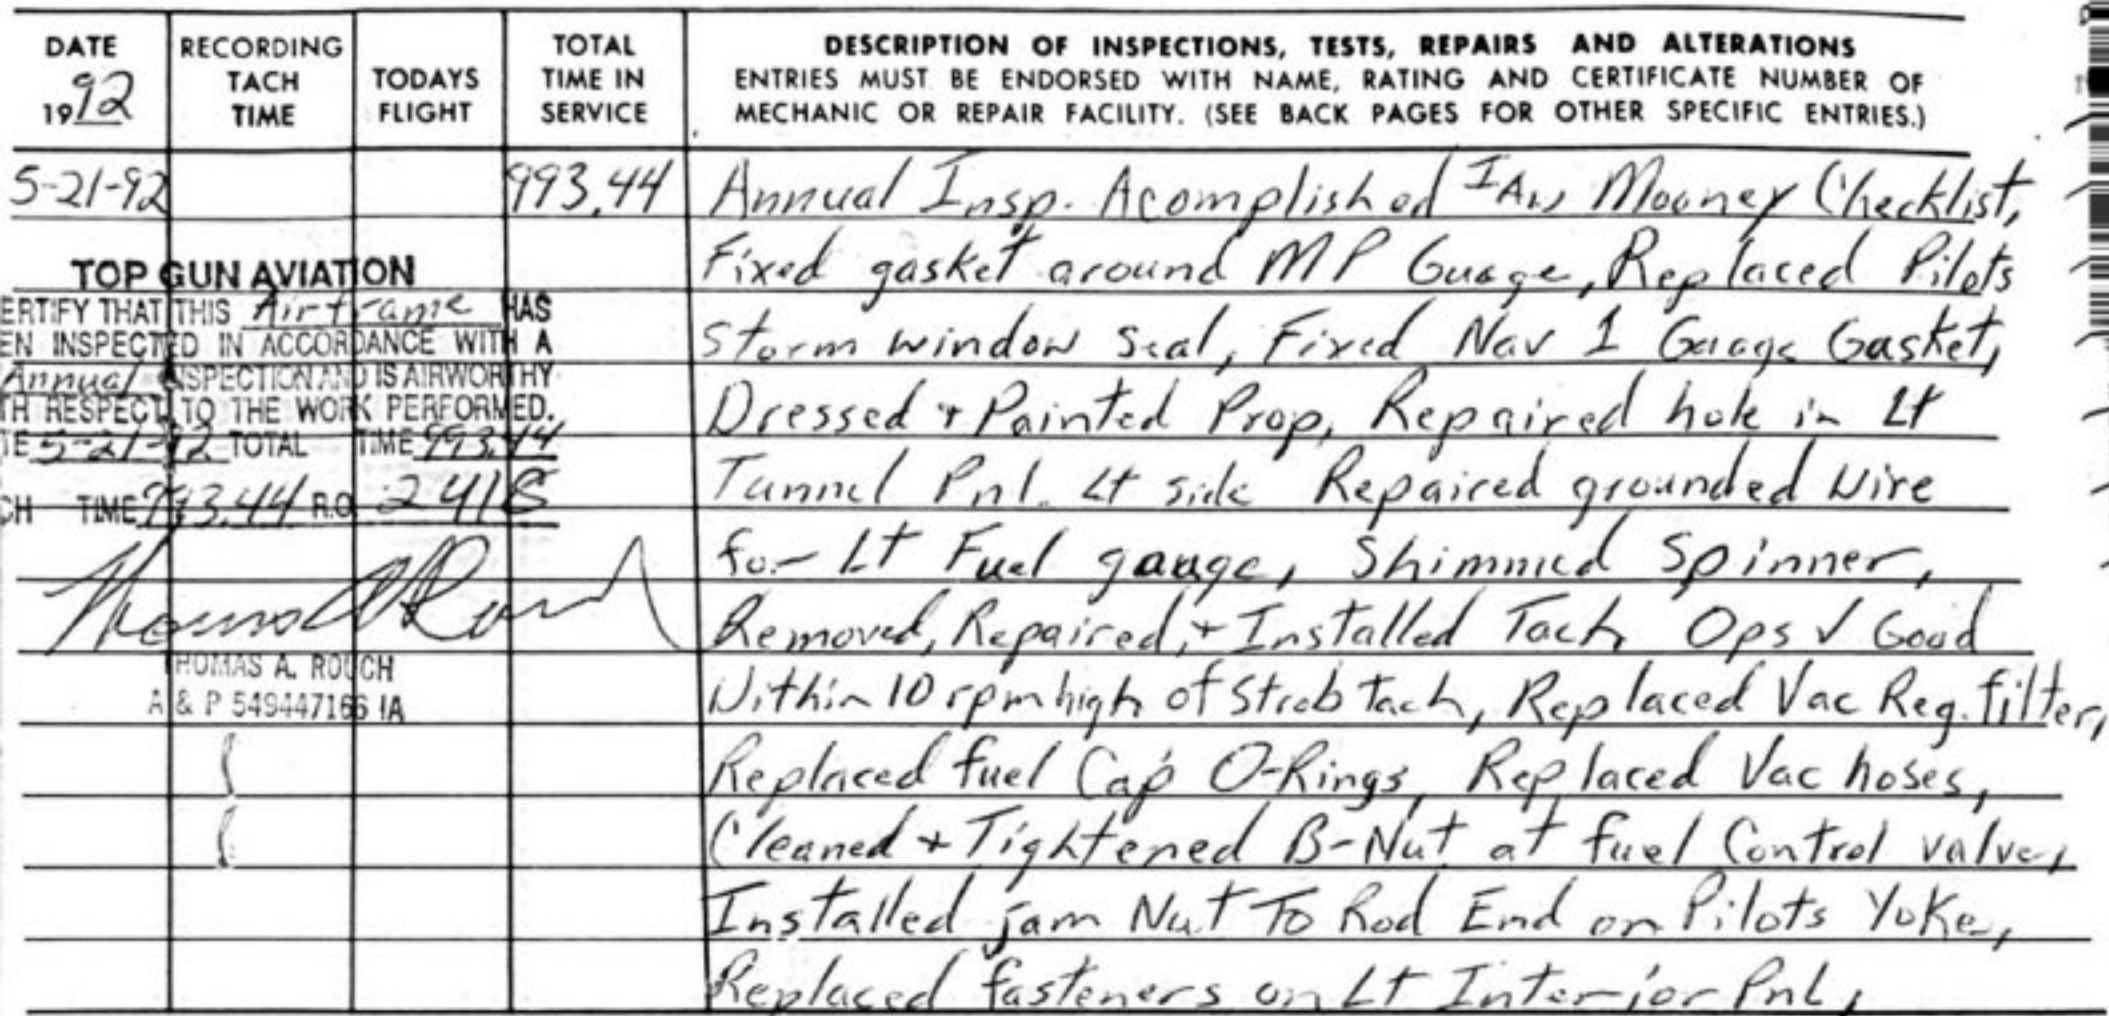 DATE
1992
RECORDING
TACH
TIME
TODAYS
FLIGHT
TOTAL
TIME IN
SERVICE
DESCRIPTION OF INSPECTIONS, TESTS, REPAIRS AND ALTERATIONS
ENTRIES MUST BE ENDORSED WITH NAME, RATING AND CERTIFICATE NUMBER OF
MECHANIC OR REPAIR FACILITY. (SEE BACK PAGES FOR OTHER SPECIFIC ENTRIES.)
5-21-92
993.44
TOP GUN AVIATION
ERTIFY THAT THIS Airframe HAS
EN INSPECTED IN ACCORDANCE WITH A
Annual INSPECTION AND IS AIRWORTHY
TH RESPECT TO THE WORK PERFORMED.
TE 5-21-92 TOTAL TIME 993.44
CH TIME 993.44 R.O. 2418
THOMAS A. ROUCH
A & P 549447166 IA
Annual Insp. Acomplished IAW Mooney Checklist,
Fixed gasket around MP Guage, Replaced Pilots
Storm window Seal, Fixed Nav 1 Guage Gasket,
Dressed + Painted Prop, Repaired hole in Lt
Tunnel Pnl. Lt side Repaired grounded Wire
for Lt Fuel gauge, Shimmed Spinner,
Removed, Repaired, + Installed Tach Ops ✓ Good
Within 10 rpm high of Strob Tach, Replaced Vac Reg. filter,
Replaced fuel Cap O-Rings, Replaced Vac hoses,
Cleaned + Tightened B-Nut at fuel Control valve,
Installed jam Nut To Rod End on Pilots Yoke,
Replaced fasteners on Lt Interior Pnl,